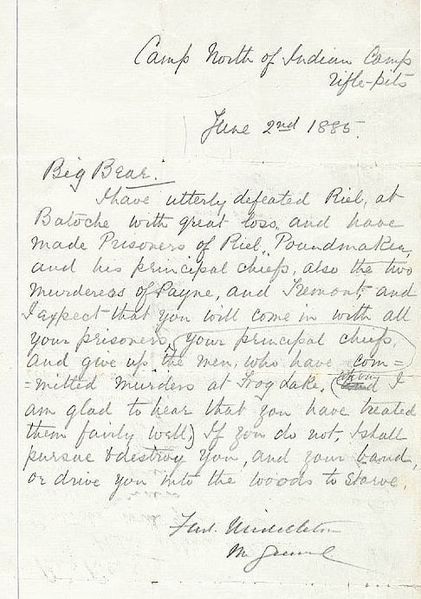 Camp North of Indian Camp
rifle-pits
June 2nd 1885.
Big Bear.
I have utterly defeated Riel, at
Batoche with great loss, and have
made Prisoners of Riel, Poundmaker,
and his principal chiefs, also the two
murderess of Payne, and Tremont, and
I expect that you will come in with all
your prisoners, your principal chiefs,
and give up the men, who have com=
=mitted murders at Frog Lake. (whom I
am glad to hear that you have treated
them fairly well) If you do not, I shall
pursue & destroy you, and your band,
or drive you into the woods to starve.
Fred. Middleton
M. General